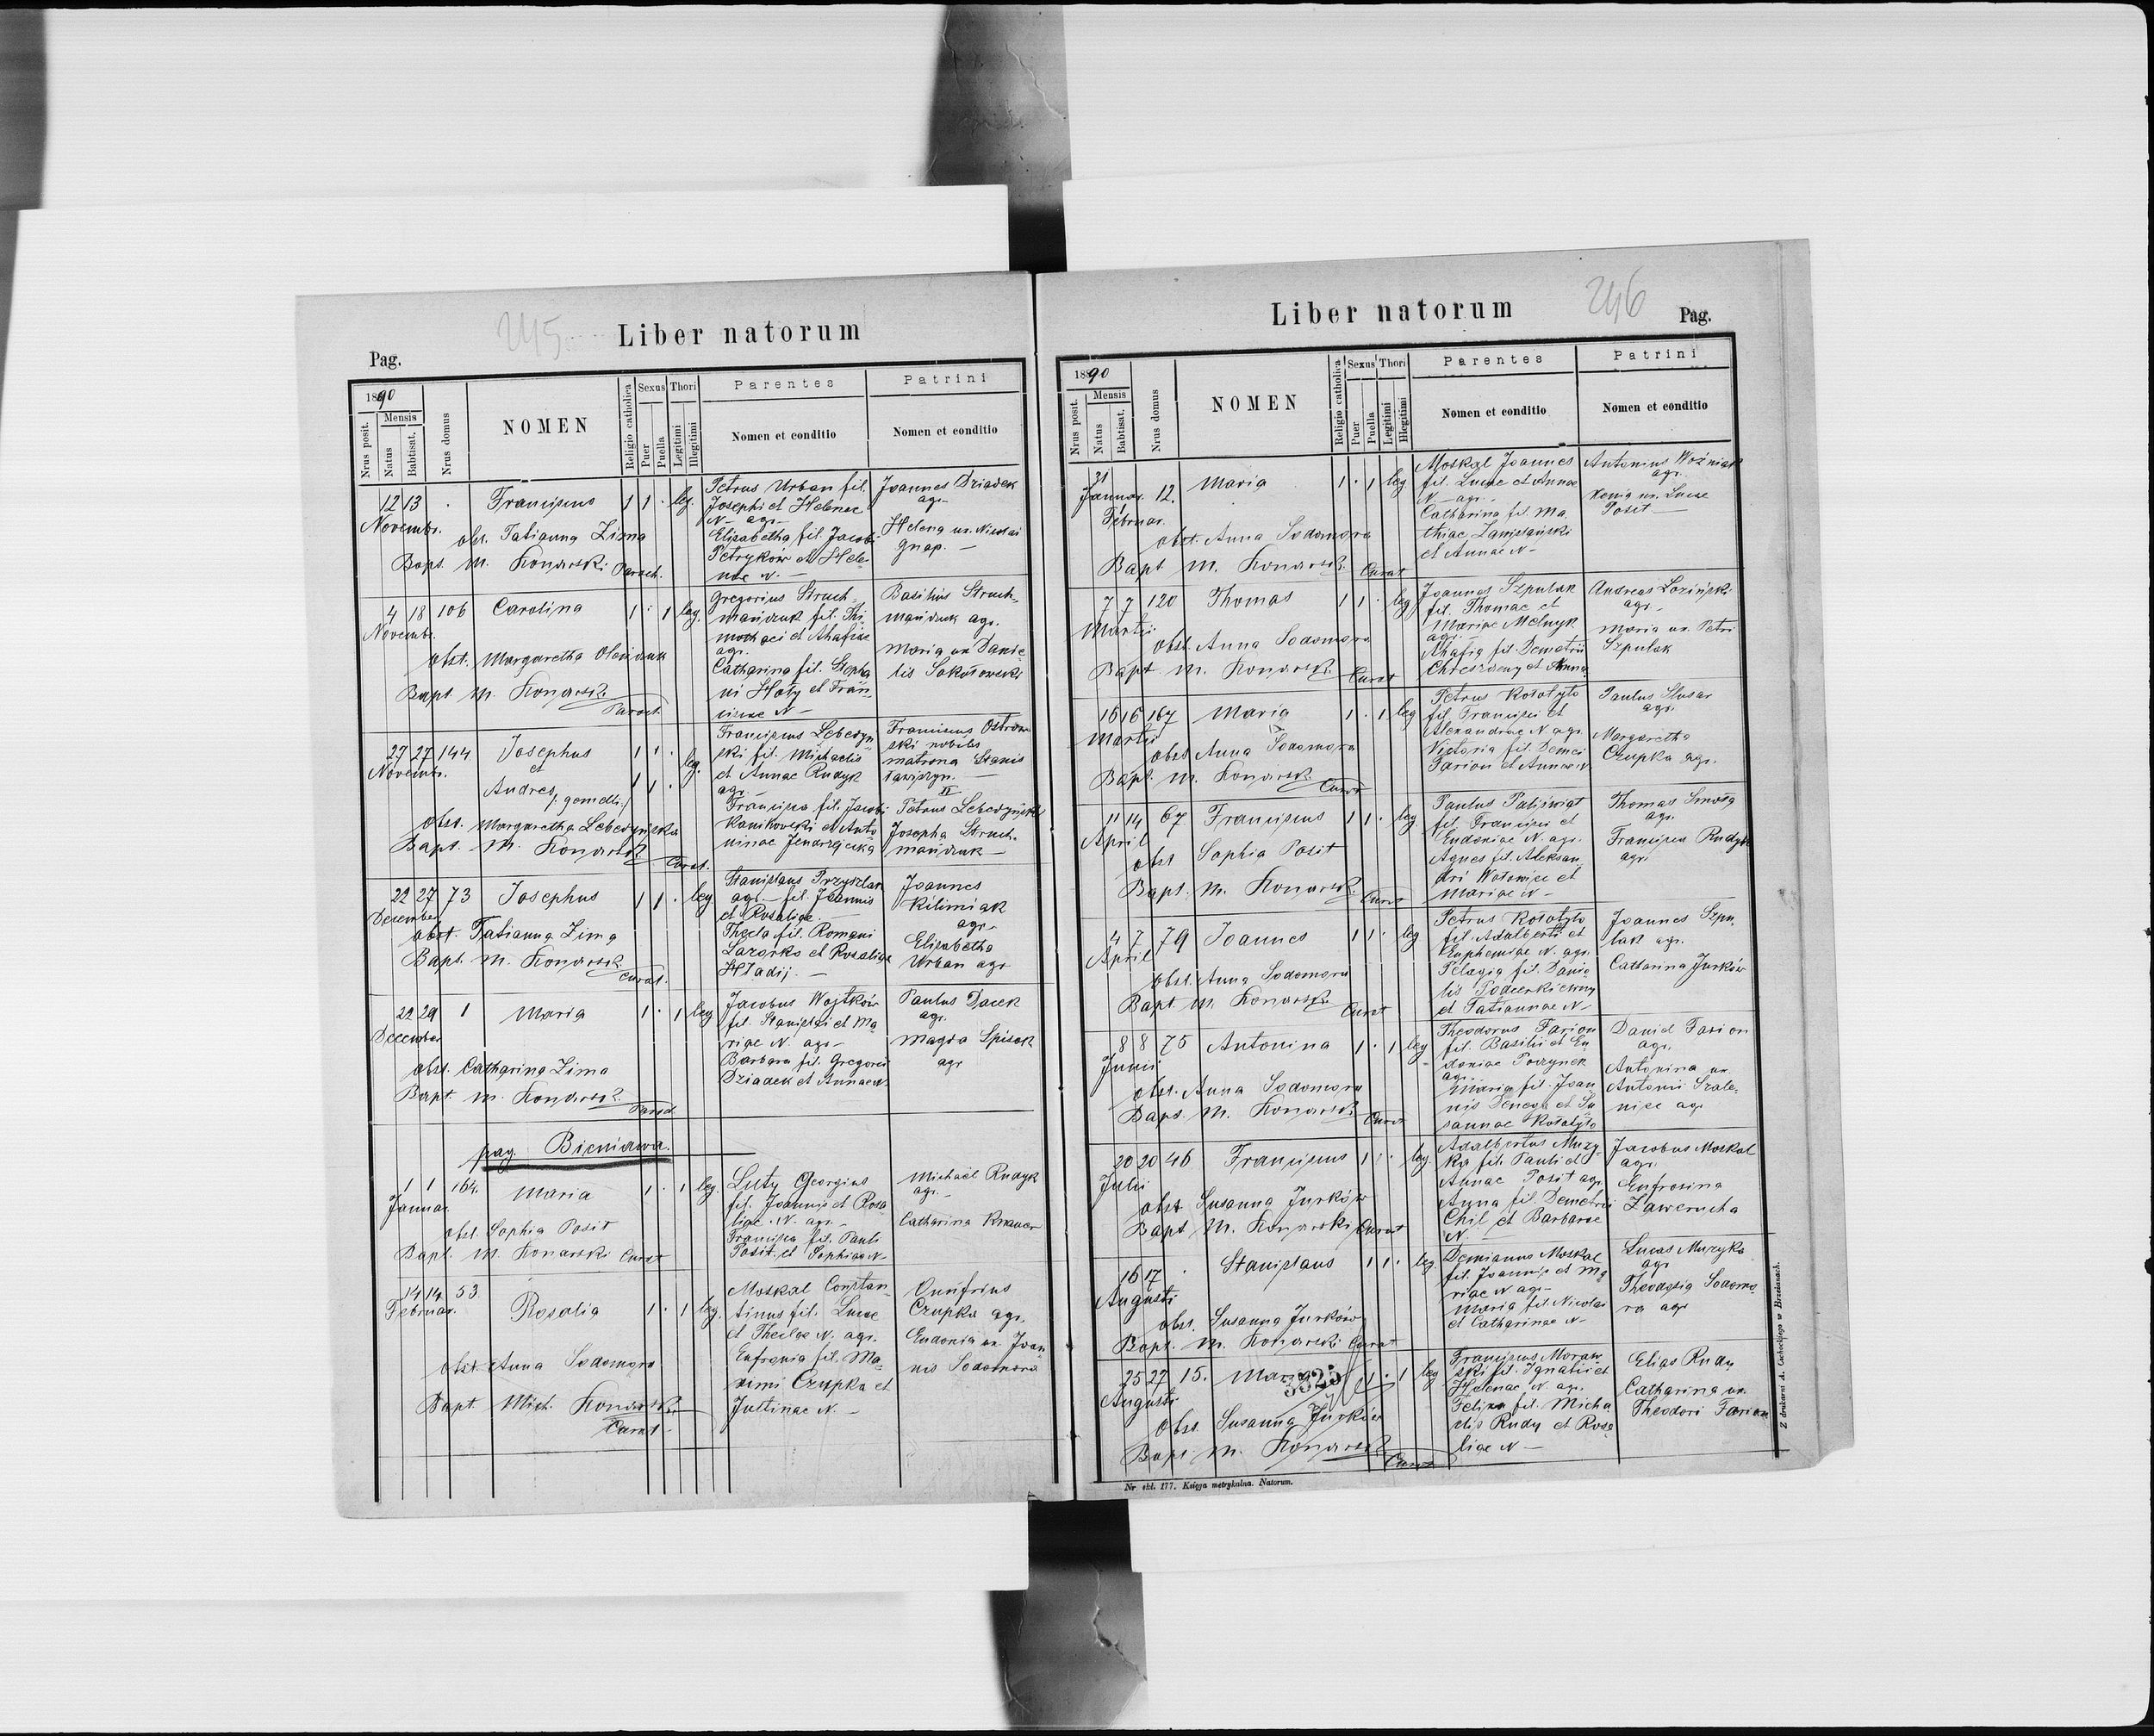 245
Liber natorum
Pag.
1890
Nrus posit.
Mensis
Natus
Babtisat.
Nrus domus
NOMEN
Religio catholica
Sexus
Puer
Puella
Thori
Legitimi
Illegitimi
Parentes
Nomen et conditio
Patrini
Nomen et conditio
12 13 . Franciscus 1 1 . leg.
Novembr.
obst. Tatianna Zima
Bapt. M. Konarski Paroch.
Petrus Urban fil.
Josephi et Helenae
N - agr -
Elisabetha fil. Jacobi
Petryków et Hele-
nae N. -
Joannes Dziadek
agr -
Helena ux. Nicolai
Gnap. -
4 18 106 Carolina 1 . 1 leg.
Novembr.
obst. Margaretha
Bapt M. Konarski
Paroch.
Gregorius Struch-
mańdruk fil. Thi
et Ahafiae
agr.
Catharina fil. Stepha
ni Hoty et Fran-
ciscae N -
Basilius Struch-
mańdruk agr.
Maria ux Danie-
lis Sokołowski
27 27 144 Josephus 1 1 .
Novembr.
et leg.
Andreas /: gemelli :/ 1 1 .
obst. Margaretha Lebedyńska
Bapt. M. Konarski
Curat.
Franciscus Lebedyń
ski fil. Michaelis
et Annae Rudyk
agr -
Francisca fil. Jacobi
Kanikowski et Anto
ninae
Franciscus Ostrow
ski nobilis
matrona Stanis
II
Petrus Lebedyński
Josepha Struch-
mańdruk -
22 27 73 Josephus 1 1 . leg
December
obst. Tatianna Zima
Bapt. M. Konarski
Curat.
Stanislaus Przyszlak
agr - fil. Joannis
et Rosaliae. -
Thecla fil. Romani
Lazorko et Rosaliae
Hladij. -
Joannes
Kilimiak
agr -
Elisabetha
Urban agr
22 29 1 Maria 1 . 1 leg
December
obst. Catharina Zima
Bapt M. Konarski
Paroch.
Jacobus Wojtków
fil. Stanislai et Ma-
riae N. agr -
Barbara fil. Gregorii
Dziadek et Annae N.
Paulus Dacek
agr.
Magda Spisak
agr
pag. Bieniawa.
1 1 164. Maria 1 . 1 leg.
Januar.
obst. Sophia Posit
Bapt. M. Konarski Curat
Luty Georgius
fil. Joannis et Rosa
liae. N. agr -
Francisca fil. Pauli
Posit et Sophiae N -
Michaël Rudyk
agr. -
Catharina
14 14 53. Rosalia 1 . 1 leg.
Februar.
obst. Anna Sodomora
Bapt Mich. Konarski
Curat -
Moskal Constan-
tinus fil. Lucae
et Theclae N. agr.
Eufrosia fil. Ma-
ximi Czupka et
Justinae N. -
Onufrius
Czupka agr.
Eudonia ux. Joan
nis Sodomora
Liber natorum
246
Pag.
1890
Nrus posit.
Mensis
Natus
Babtisat.
Nrus domus
NOMEN
Religio catholica
Sexus
Puer
Puella
Thori
Legitimi
Illegitimi
Parentes
Nomen et conditio
Patrini
Nomen et conditio
31
Januar. 12. Maria 1 . 1 leg
1
Februar.
obst. Anna Sodomora
Bapt M. Konarski Curat
Moskal Joannes
fil. Lucae et Annae
N - agr. -
Catharina fil. Ma
thiae
et Annae N -
Antonius Woźniak
agr.
Xenia ux. Lucae
Posit -
7 7 120 Thomas 1 1 . leg
Martii
obst. Anna Sodomora
Bapt M. Konarski
Curat
Joannes Szpulak
fil. Thomae et
Mariae Melnyk
agr. -
Ahafia fil Demetrii
et Annae
Andreas Łoziński
agr -
Maria ux. Petri
Szpulak
16 16 167 Maria 1 . 1 leg
Martii
obst Anna Sodomora
Bapt. M. Konarski
Curat
Petrus Kołotyło
fil. Francisci et
Alexandrae N agr.
Victoria fil. Demci
Farion et Annae N
Paulus Slusar
agr.
Margaretha
Czupka agr.
11 14 67 Franciscus 1 1 . leg.
April
obst Sophia Posit
Bapt. M. Konarski
Curat
Paulus Paliświat
fil. Francisci et
Eudoniae N. agr.
Agnes fil. Aleksan
dri Wołowiec et
Mariae N -
Thomas Smoła
agr.
Francisca Rudyk
agr.
4 7 79 Joannes 1 1 . leg
April
obst. Anna Sodomora
Bapt M. Konarski
Curat
Petrus Kołotyło
fil. Adalberti et
Euphemiae N. agr.
Pelagia fil. Danie
lis
et Tatiannae N -
Joannes Szpu-
lak agr.
Catharina Jurków
8 8 75 Antonina 1 . 1 leg
Junii
obst. Anna Sodomora
Bapt. M. Konarski
Curat
Theodorus Farion
fil. Basilii et Eu
doniae
agr. -
Maria fil. Joan
nis Denega et Su
sannae Kołotyło
Daniel Farion
agr.
Antonina ux.
Antonii Szale-
niec agr
20 20 46 Franciscus 1 1 . leg.
Julii
obst Susanna Jurków
Bapt M. Konarski Curat
Adalbertus Muzy-
ka fil. Pauli et
Annae Posit agr.
Anna fil. Demetrii
Chil et Barbarae
N -
Jacobus Moskal
agr.
Eufrosina
Zawerucha
16 17 . Stanislaus 1 1 . leg
Augusti
obst. Susanna Jurków
Bapt. M. Konarski Curat
Demianus Moskal
fil. Joannis et Ma
riae N agr -
Maria fil. Nicolai
et Catharinae N -
Lucas Muzyka
agr
Theodosia Sodomo
ra agr
25 27 15. Maria 1 . 1 leg
Augusti
obst. Susanna Jurków
Bapt. M. Konarski
Curat
Franciscus Moraw
ski fil. Ignatii et
Helenae N. agr.
fil. Micha
elis Rudy et Rosa
liae N -
Elias Rudy
Catharina ux.
Theodori Farion
Nr. skł. 177. Księga metrykalna. Natorum.
Z drukarni A. Cichockiego w Brzeżanach.